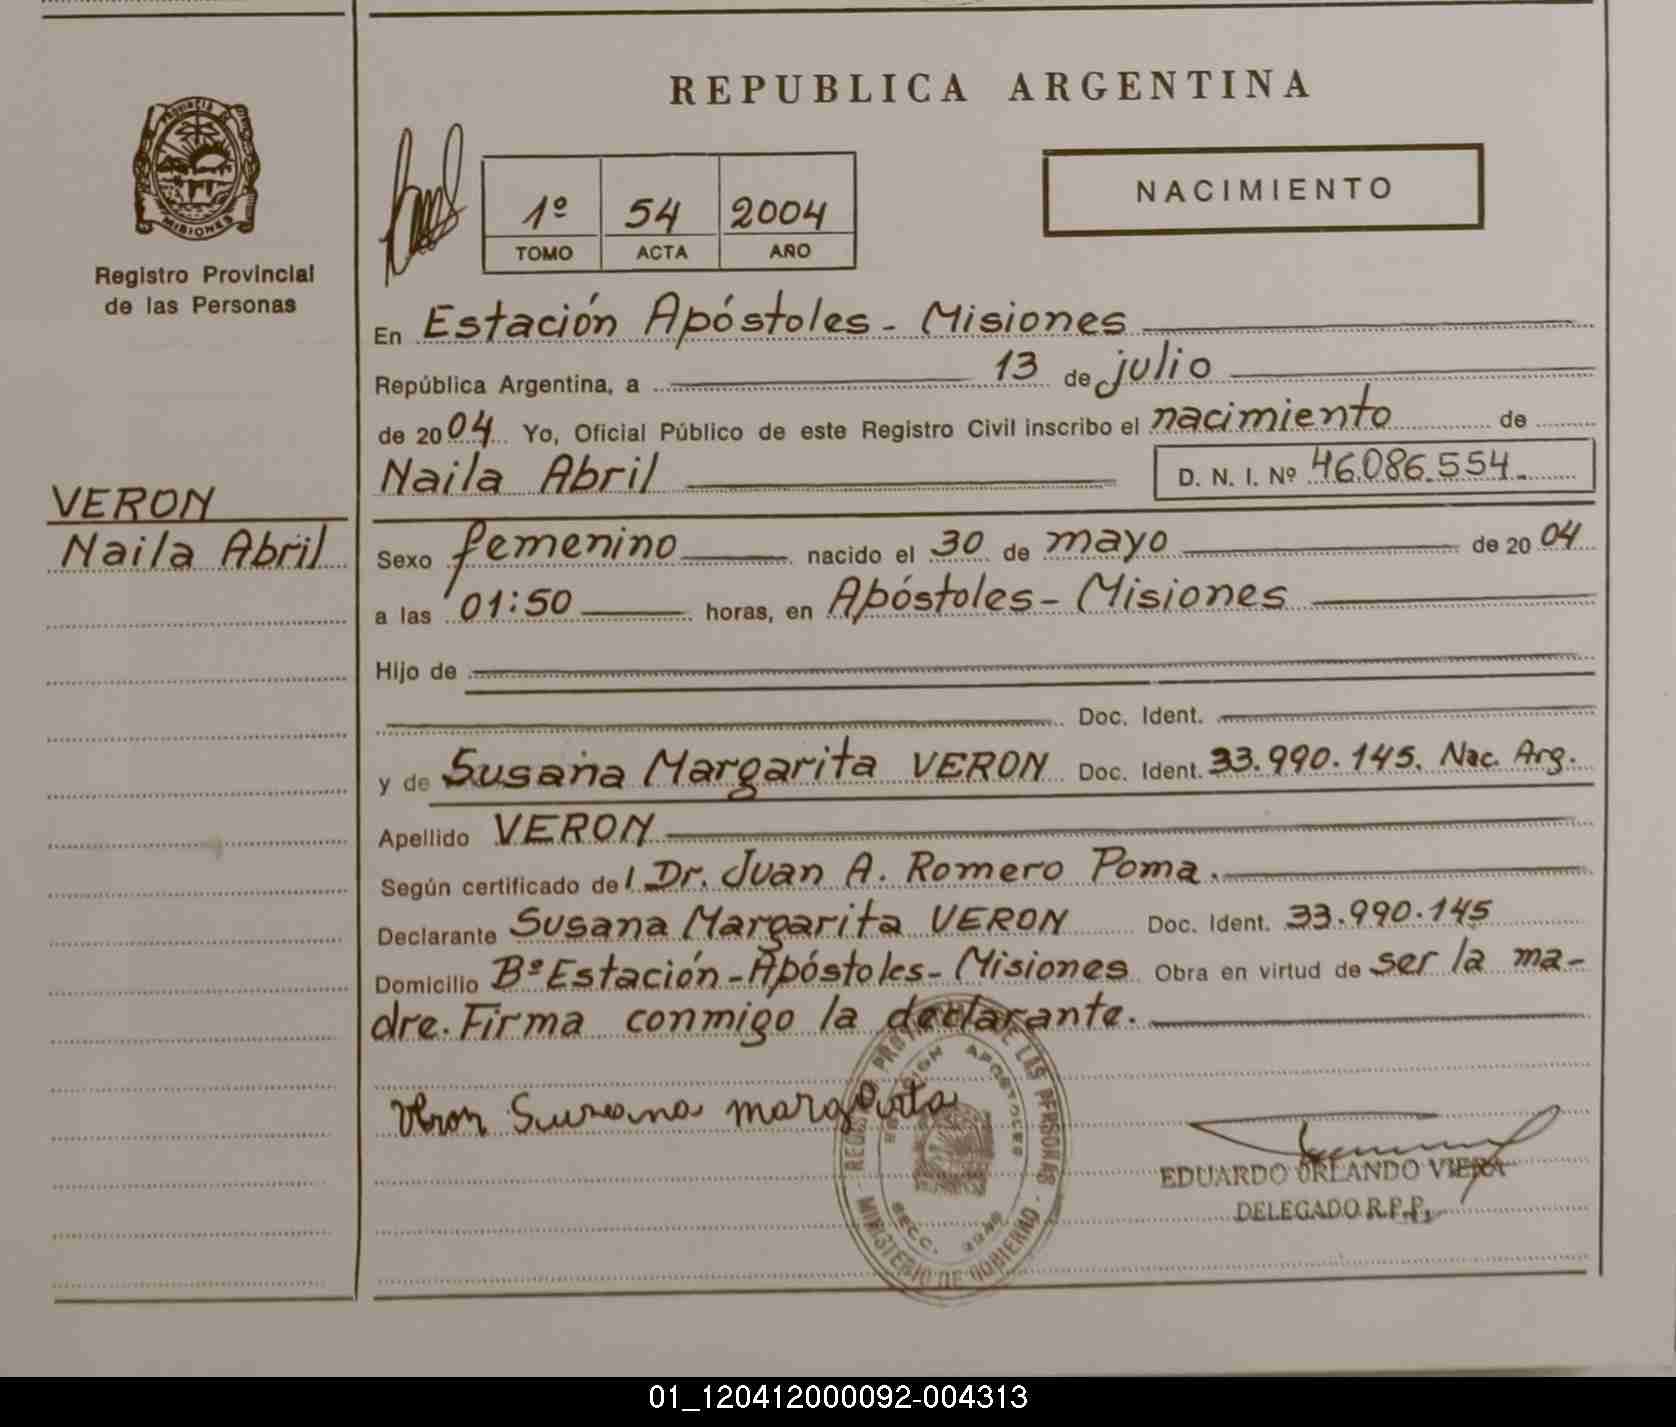 REPUBLICA ARGENTINA
PROVINCIA DE
MISIONES
Registro Provincial
de las Personas
1º 54 2004
TOMO ACTA AÑO
NACIMIENTO
En Estación Apóstoles - Misiones
República Argentina, a 13 de julio
de 2004 Yo, Oficial Público de este Registro Civil inscribo el nacimiento de
Naila Abril D. N. I. Nº 46.086.554.
VERON
Naila Abril
Sexo femenino nacido el 30 de mayo de 2004
a las 01:50 horas, en Apóstoles - Misiones
Hijo de
Doc. Ident.
y de Susana Margarita VERON Doc. Ident. 33.990.145. Nac. Arg.
Apellido VERON
Según certificado del Dr. Juan A. Romero Poma.
Declarante Susana Margarita VERON Doc. Ident. 33.990.145
Domicilio Bº Estación - Apóstoles - Misiones Obra en virtud de ser la ma-
dre. Firma conmigo la declarante.
Veron Susana margarita
DE LAS PERSONAS
MINISTERIO DE GOBIERNO
SECC.
EDUARDO ORLANDO VIERA
DELEGADO R.P.P.
01_120412000092-004313